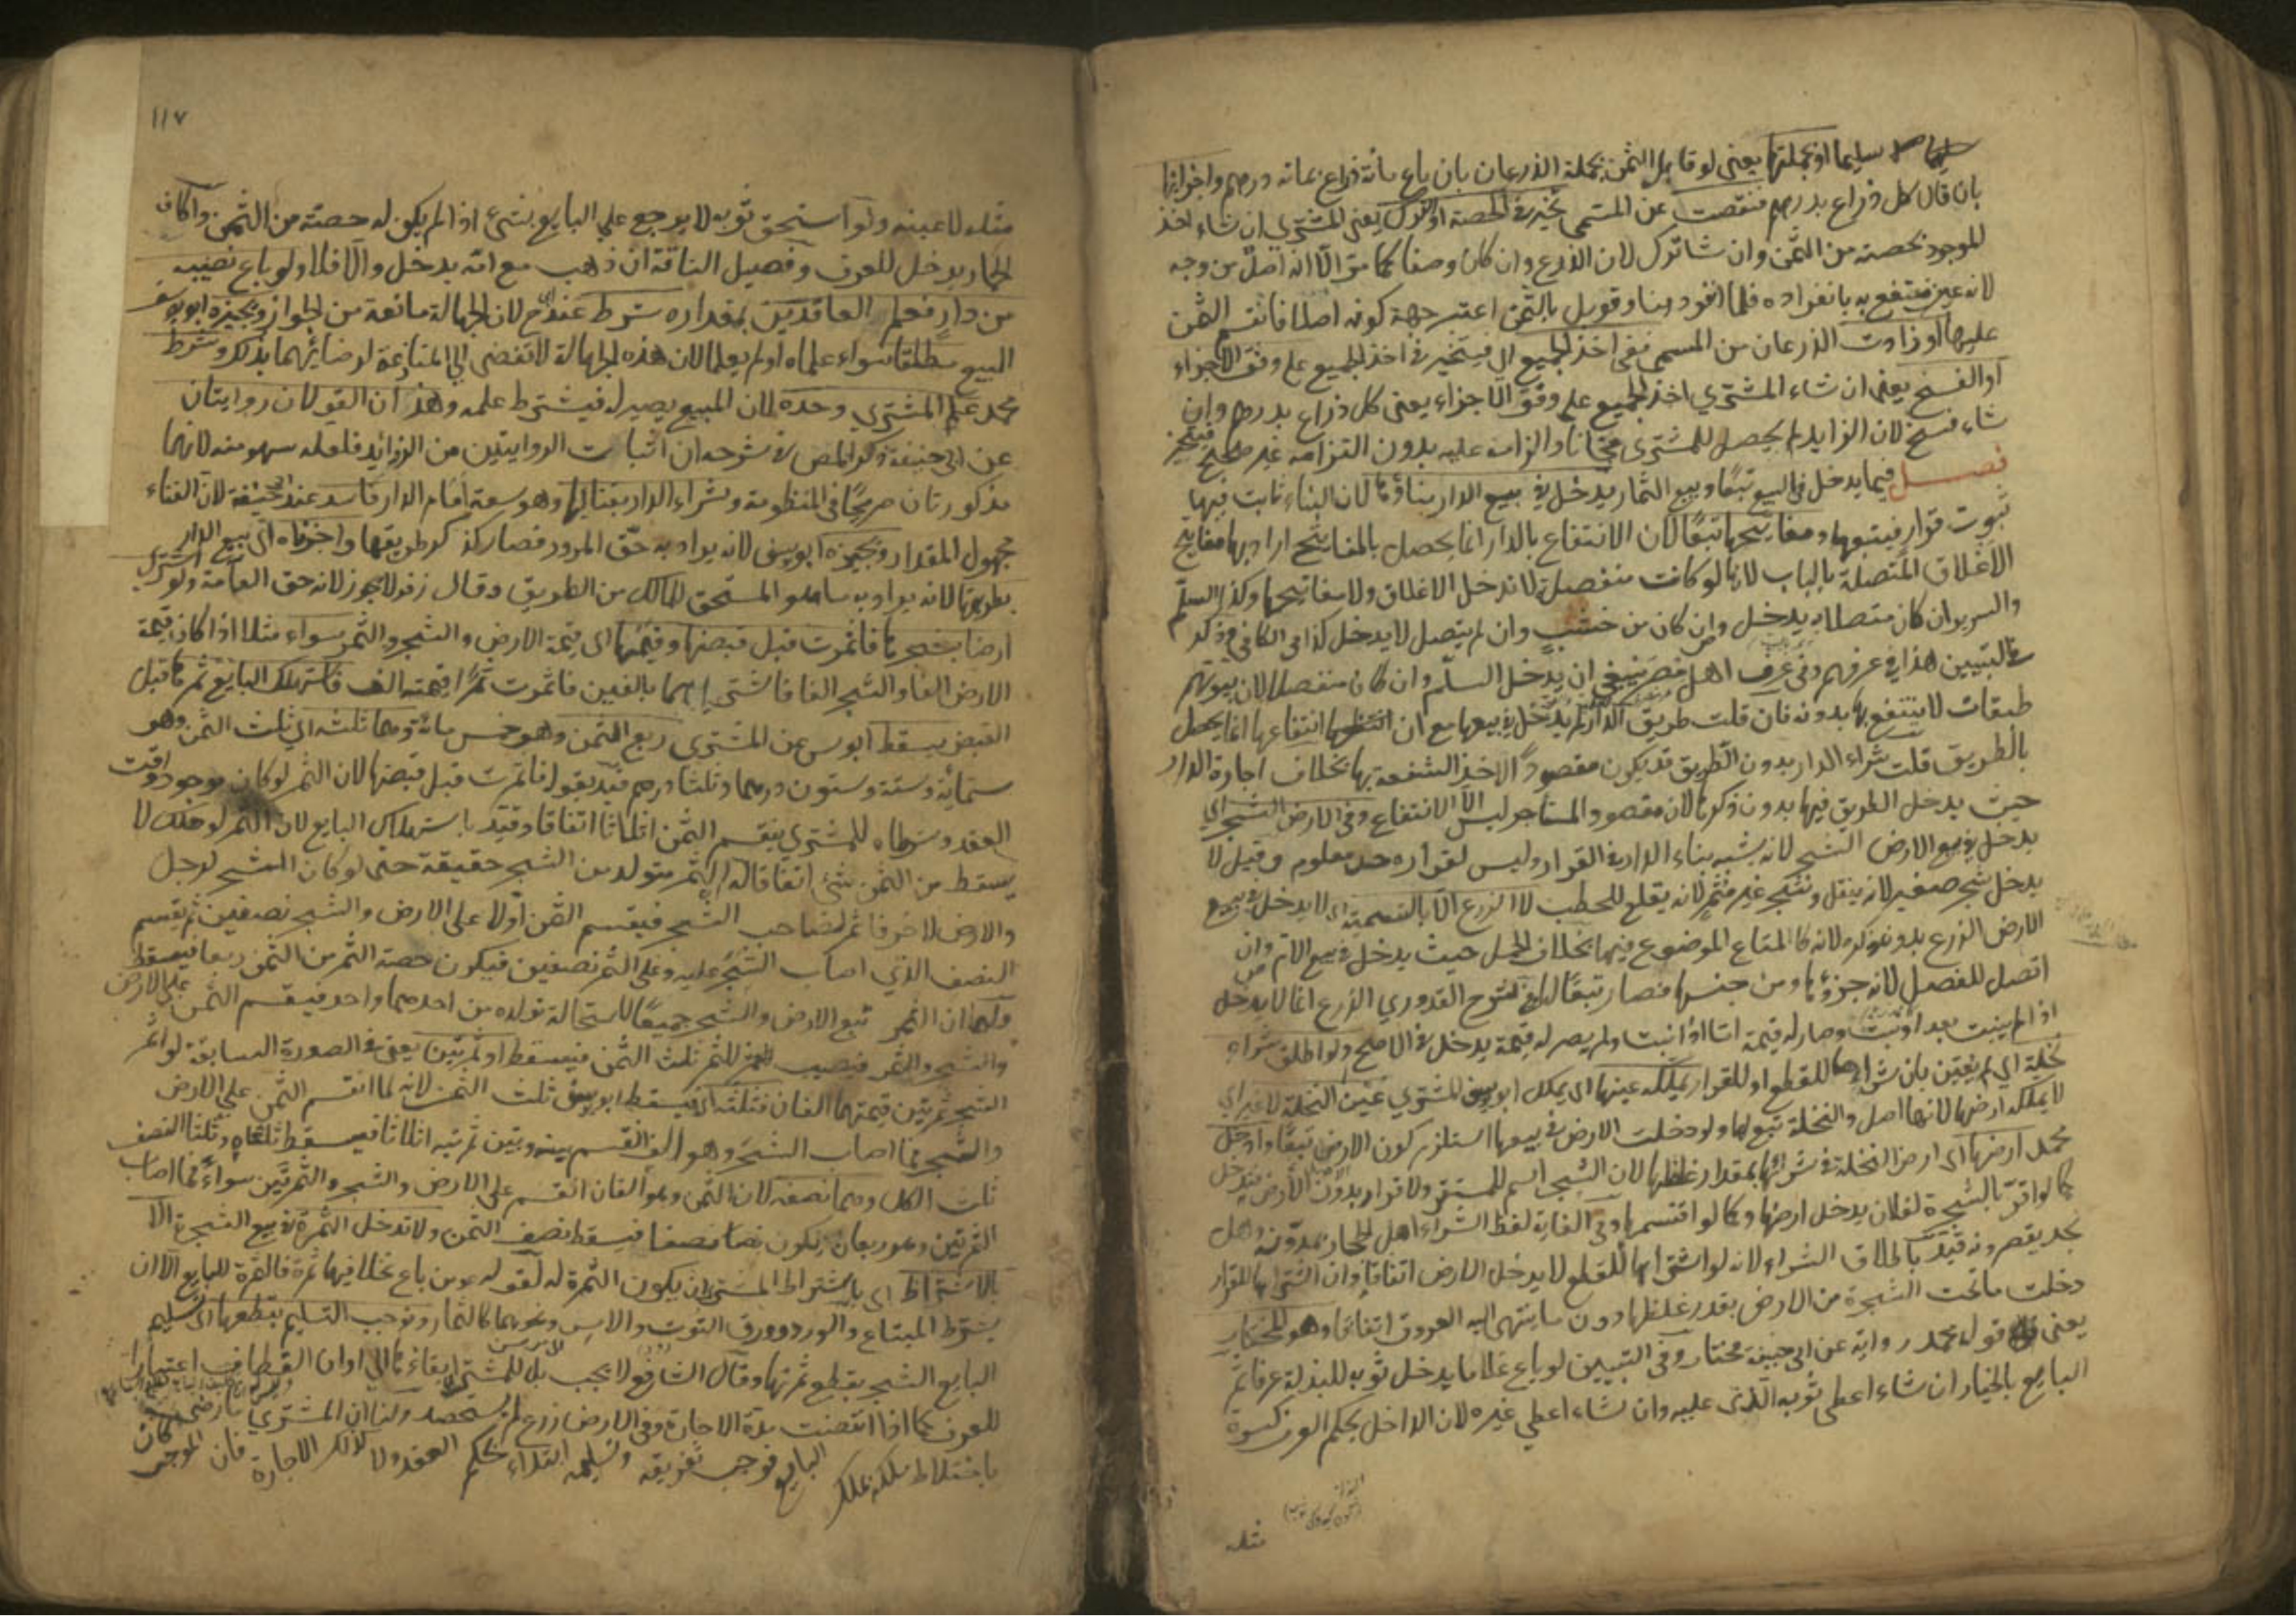 سليما او بجملتها يعني لو قابل الثمن بجملة الذرعان بان باع مائة ذراع بمائة درهم واجزائها
بان قال كل ذراع بدرهم فنقصت عن المسمى يخير في الحصة او الترك يعني المشتري ان شاء اخذ
الموجود بحصته من الثمن وان شا ترك لان الذرع وان كان وصفا كما مر الا انه اصل من وجه
لانه عين منتفع به بانفراده فلما انفرد هنا وقوبل بالثمن اعتبر جهة كونه اصلا فانقسم الثمن
عليها او زادت الذرعان من المسمى ففي اخذ الجميع اي فيتخير في اخذ الجميع على وفق الاجزاء
او الفسخ يعني ان شاء المشتري اخذ الجميع على وفق الاجزاء يعني كل ذراع بدرهم وان
شاء فسخ لان الزايد لم يحصل للمشتري مجانا والزامه عليه بدون التزامه غير صحيح فيتخير
فصل فيما يدخل في البيع تبعا وبيع الثمار يدخل في بيع الدار بناؤها لان البناء ثابت فيها
ثبوت قرار فيتبعها ومفاتيحها تبعا لان الانتفاع بالدار انما يحصل بالمفاتيح اراد بها مفاتيح
الاغلاق المتصلة بالباب لانها لو كانت منفصلة لا تدخل الاغلاق ولا مفاتيحها وكذا السلم
والسرير ان كان متصلا به يدخل وان كان من خشب وان لم يتصل لا يدخل كذا في الكافي وذكر
في التبيين هذا في عرفهم وفي عرف اهل مصر ينبغي ان يدخل السلم وان كان منفصلا لان بيوتهم
طبقات لا ينتفع بها بدونه فان قلت طريق الدار لم يدخل في بيعها مع ان انتفاعها انما يحصل
بالطريق قلت شراء الدار بدون الطريق قد يكون مقصودا لاخذ الشفعة بها بخلاف اجارة الدار
حيث يدخل الطريق فيها بدون ذكرها لان مقصود المستأجر ليس الا الانتفاع وفي الارض الشجر اي
يدخل في بيع الارض الشجر لانه يشبه بناء الدار في القرار وليس لقراره حد معلوم وقيل لا
يدخل شجر صغير لانه ينقل وشجر غير مثمر لانه يقلع للحطب لا الزرع الا بالتسمية اي لا يدخل في بيع
الارض الزرع بدون ذكره لانه كالمتاع الموضوع فيها بخلاف الحمل حيث يدخل في بيع الام وان
اتصل للفصل لانه جزؤها ومن جنسها فصار تبعا لها في شرح القدوري الزرع انما لا يدخل
اذا لم ينبت بعد او نبت وصار له قيمة اما اذا نبت ولم يصر له قيمة يدخل في الاصح ولو اطلق شراء
نخلة اي لم يعين بان شراءها للقطع او للقرار يملكه عينها اي يملك ابو يوسف المشتري عين النخلة لا غير اي
لا يملكه ارضها لانها اصل والنخلة تبع لها ولو دخلت الارض في بيعها استلزم كون الارض تبعا وادخل
محمد ارضها اي ارض النخلة في شرائها بمقدار غلظها لان الشجر اسم للمستقر ولا قرار بدون الارض فيدخل
كما لو اقر بالشجرة لفلان يدخل ارضها وكما لو اقتسمها وفي الغاية لفظ الشراء اهل الحجاز يمدونه واهل
نجد يقصرونه قيد باطلاق الشراء لانه لو اشترى بها للقطع لا يدخل الارض اتفاقا وان اشتراها للقرار
دخلت ما تحت الشجرة من الارض بقدر غلظها دون ما ينتهي اليه العروق اتفاقا وهو المختار
يعني قوله محمد رواية عن ابي حنيفة مختار وفي التبيين لو باع غلاما يدخل ثوبه للبذلة عرفا ثم
البايع بالخيار ان شاء اعطى ثوبه الذي عليه وان شاء اعطى غيره لان الداخل بحكم العرف كسوة
مثله
١١٧
مثله لا عينه ولو استحق ثوبه لا يرجع على البايع بشيء اذا لم يكن له حصته من الثمن واكاف
الحمار يدخل للعرف وفصيل الناقة ان ذهب مع امه يدخل والا فلا ولو باع نصيبه
من دار فعلم العاقدين بمقداره شرط عند ح لان الجهالة مانعة من الجواز ويجيزه ابو يوسف
البيع مطلقا سواء علماه او لم يعلما لان هذه الجهالة لا تفضي الى المنازعة لرضائهما بذلك وشرط
محمد علم المشتري وحده لان المبيع يصير له فيشترط علمه وهذان القولان روايتان
عن ابي حنيفة ذكر المص في شرحه ان اثبات الروايتين من الزوايد فلعله سهو منه لانهما
مذكورتان صريحا في المنظومة وشراء الدار بفنائها وهو سعة امام الدار فاسد عند ابي حنيفة لان الفناء
مجهول المقدار ويجيزه ابو يوسف لانه يراد به حق المرور فصار كذكر طريقها واجزناه اي بيع الدار
بطريقها لانه يراد به ما هو المستحق للمالك من الطريق وقال زفر لا يجوز لانه حق العامة ولو اشترى
ارضا بشجرها فاثمرت قبل قبضها وقيمتها اي قيمة الارض والشجر والثمر سواء مثلا اذا كان قيمة
الارض الفا والشجر الفا فاشتراهما بالفين فاثمرت ثمرا قيمته الف فاستهلك البايع ثمرها قبل
القبض يسقط ابو س عن المشتري ربع الثمن وهو خمس مائة وهما ثلثه اي ثلث الثمن وهو
ستمائة وستة وستون درهما وثلثا درهم قيد بقوله فاثمرت قبل قبضها لان الثمر لو كان موجودا وقت
العقد وشرطاه للمشتري ينقسم الثمن اثلاثا اتفاقا وقيد باستهلاك البايع لان الثمر لو هلك لا
يسقط من الثمن شيء اتفاقا له ان الثمر متولد من الشجر حقيقة حتى لو كان الشجر لرجل
والارض لاخر فاثمر لصاحب الشجر فيقسم الثمن اولا على الارض والشجر نصفين ثم يقسم
النصف الذي اصاب الشجر عليه وعلى الثمر نصفين فيكون حصة الثمر من الثمن ربعا فيسقط
ولهما ان الثمر تبع الارض والشجر جميعا لاستحالة تولده من احدهما واحد فيقسم الثمن على الارض
والشجر والثمر فيصيب الثمر ثلث الثمن فيسقط او ثمرتين يعني في الصورة السابقة لو اثمر
الشجر ثمرتين قيمتهما الفان فثلثه اي فيسقط ابو يوسف ثلث الثمن لانه لما انقسم الثمن على الارض
والشجر فما اصاب الشجر وهو الف انقسم بينه وبين ثمرتيه اثلاثا فيسقط ثلثاه وثلثا النصف
ثلث الكل وهما نصفه لان الثمن وهو الفان انقسم على الارض والشجر والثمرتين سواء فما اصاب
الثمرتين وهو ربعان يكون نصفا فيسقط نصف الثمن ولا تدخل الثمرة في بيع الشجرة الا
بالاشتراط اي باشتراط المشتري ان يكون الثمرة له لقوله عم من باع نخلا فيها ثمرة فالثمرة للبايع الا ان
يشترط المبتاع والورد وورق التوت والآس ونحوهما كالثمار ونوجب التسليم بقطعها اي تسليم
البايع الشجر بقطع ثمرتها وقال الشافعي لا يجب بل للمشتري ابقاءها الى اوان القطاف اعتبارا
للعرف كما اذا انقضت مدة الاجارة وفي الارض زرع لم يستحصد ولنا ان المشتري
باختلاط ملكه بملك البايع فوجب تفريقه وتسليمه ابتداء بحكم العقد ولا كذلك الاجارة فان الموجر كان